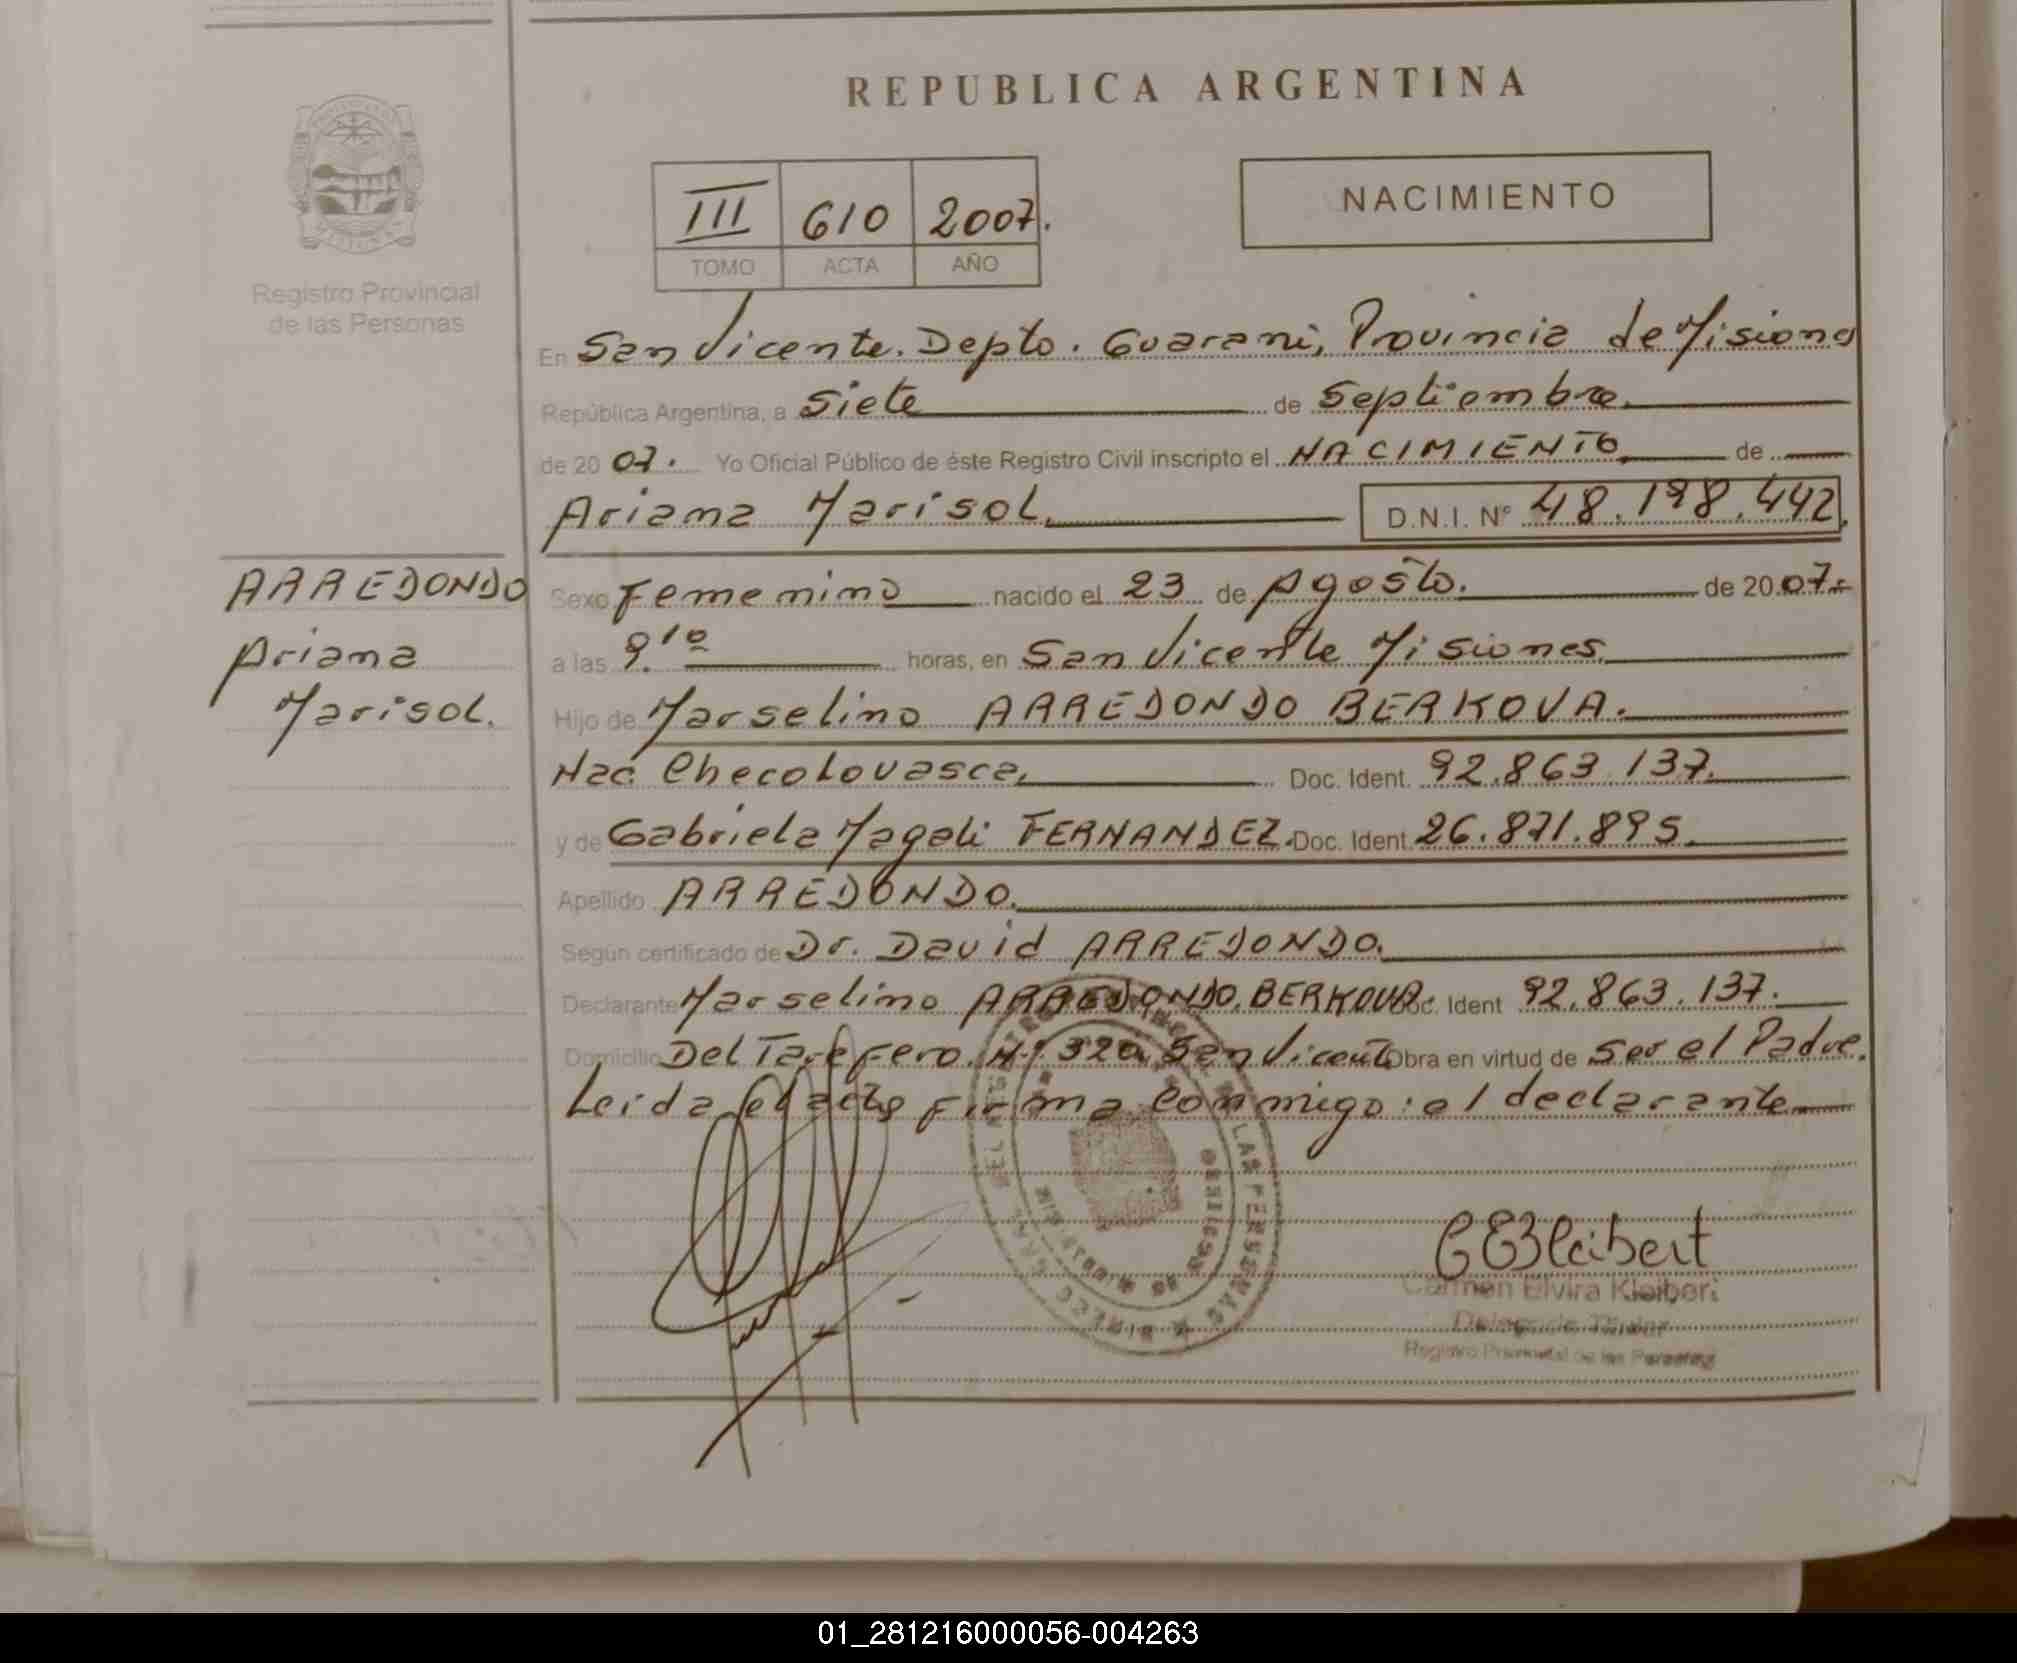 REPUBLICA ARGENTINA
III 610 2007.
TOMO ACTA AÑO
NACIMIENTO
Registro Provincial
de las Personas
En San Vicente. Depto. Guarani, Provincia de Misiones
República Argentina, a Siete de Septiembre.
de 20 07. Yo Oficial Público de éste Registro Civil inscripto el NACIMIENTO de
Ariana Marisol. D.N.I. Nº 48.198.442.
ARREDONDO
Ariana
Marisol.
Sexo Femenino nacido el 23 de Agosto. de 20 07.-
a las 9.10 horas, en San Vicente Misiones.
Hijo de Marselino ARREDONDO BERKOVA.
Nac. Checolovasca. Doc. Ident. 92.863.137.
y de Gabriela Magali FERNANDEZ. Doc. Ident. 26.871.895.
Apellido ARREDONDO.
Según certificado de Dr. David ARREDONDO.
Declarante Marselino ARREDONDO BERKOVA Doc. Ident 92.863.137.
Domicilio Del Tarefero. Nº 320 San Vicente Obra en virtud de Ser el Padre.
Leida el acta firma conmigo: el declarante
CEKleibert
Carmen Elvira Kleibert
Delegada Titular
Registro Provincial de las Personas
01_281216000056-004263